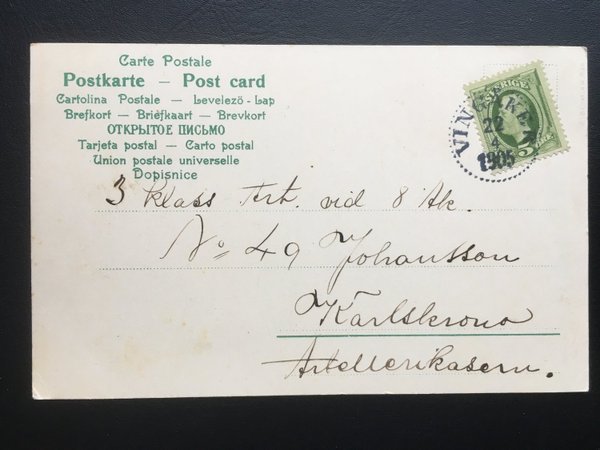 Carte Postale
Postkarte — Post card
Cartolina Postale — Levelező-Lap
Brefkort — Briefkaart — Brevkort
ОТКРЫТОЕ ПИСЬМО
Tarjeta postal — Carto postal
Union postale universelle
Dopisnice
SVERIGE
5
VINGÅKER
22
4
1905
3 klass Art. vid 8 Ak.
No 49 Johansson
Karlskrona
Artellerikasern.